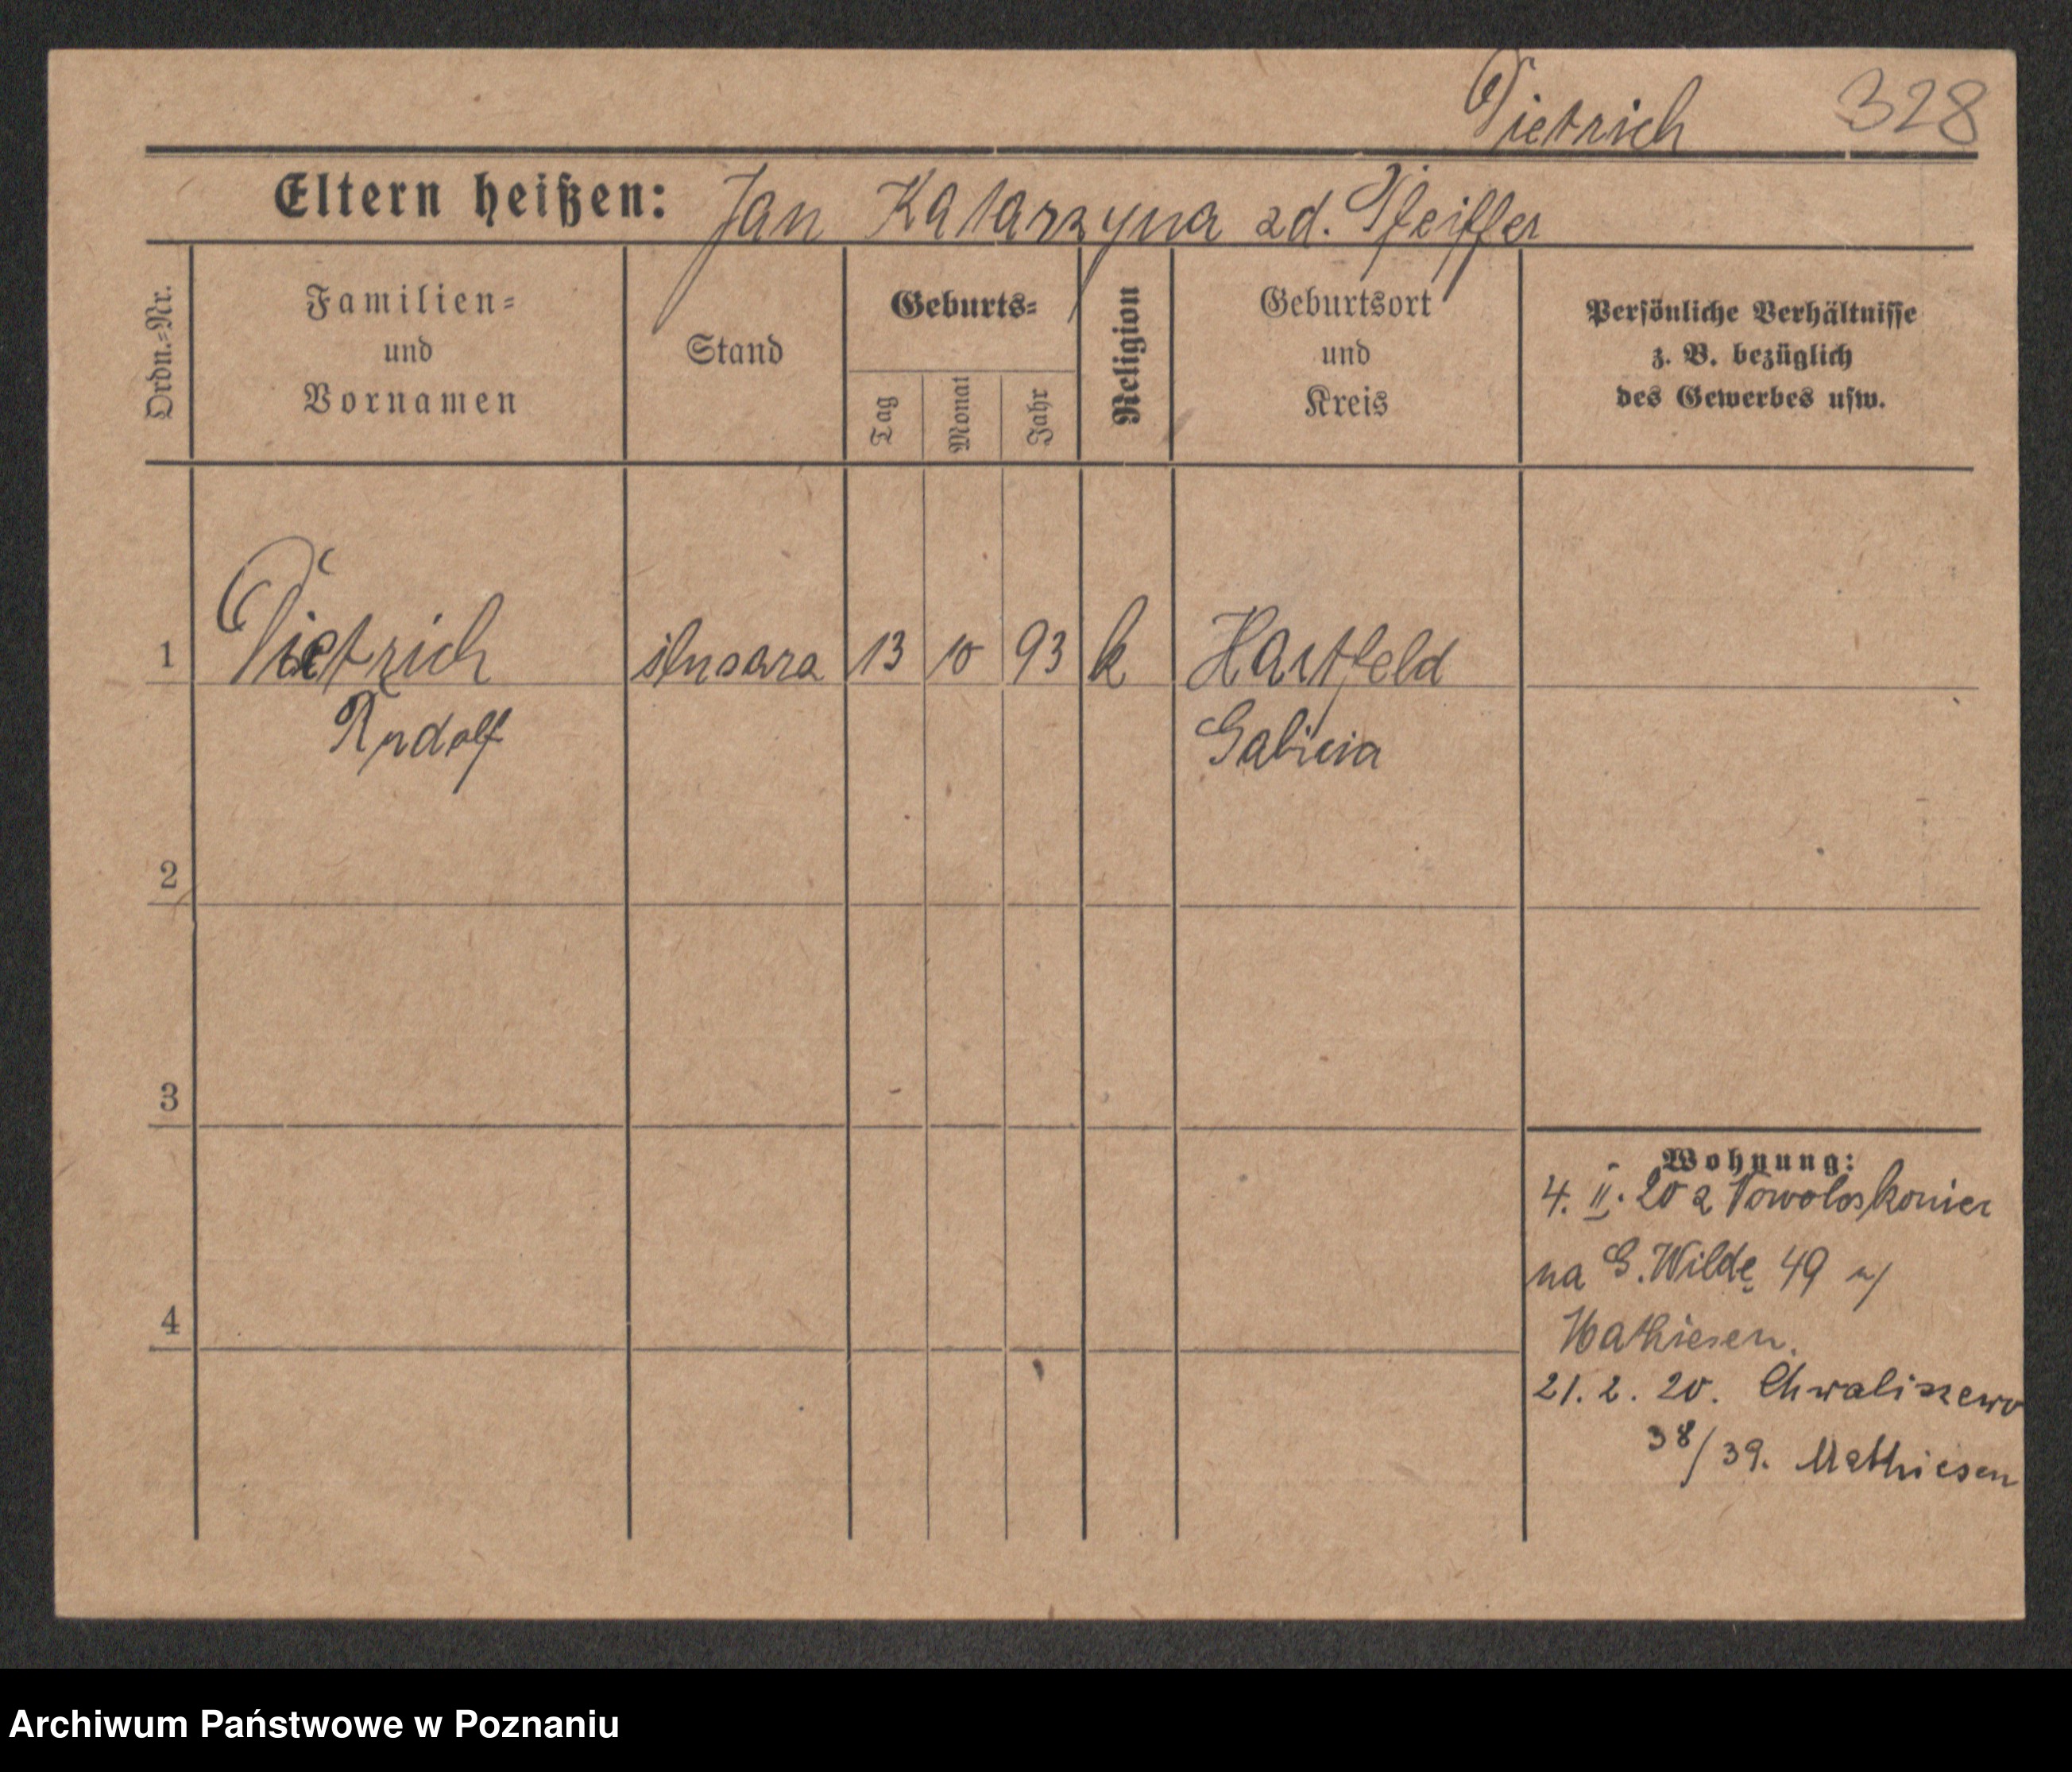 Dietrich 328
Eltern heißen: Jan Katarzyna zd. Pfeiffer
Ordn.=Nr.
Familien=
und
Vornamen
Stand
Geburts=
Tag
Monat
Jahr
Religion
Geburtsort
und
Kreis
Persönliche Verhältnisse
z. B. bezüglich
des Gewerbes usw.
1 Dietrich ślusarz 13 10 93 k Hartfeld
Rudolf Galicia
2
3
4
Wohnung:
4. II. 20 z
na G. Wildę 49
Mathiesen.
21. 2. 20. Chwaliszewo
38/39. Mathiesen
Archiwum Państwowe w Poznaniu